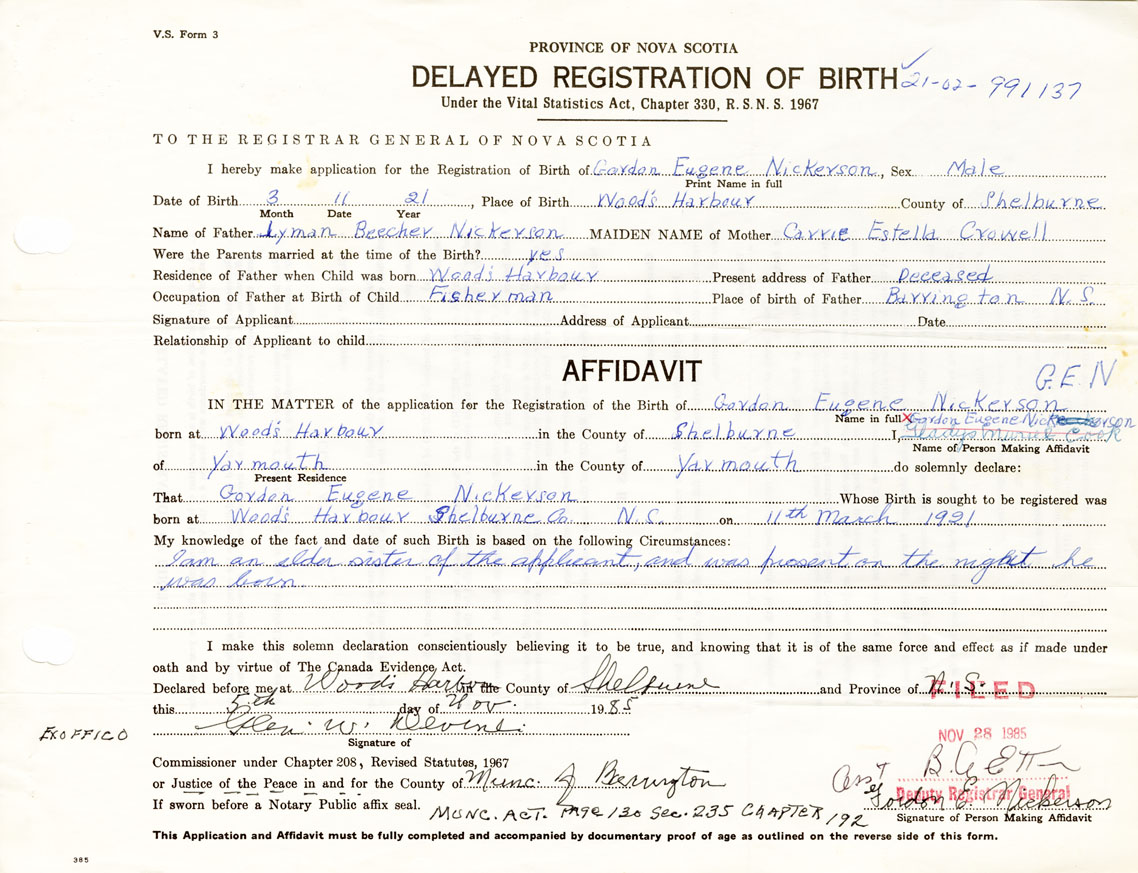 V.S. Form 3
PROVINCE OF NOVA SCOTIA
DELAYED REGISTRATION OF BIRTH 21-02-991137
Under the Vital Statistics Act, Chapter 330, R.S.N.S. 1967
TO THE REGISTRAR GENERAL OF NOVA SCOTIA
I hereby make application for the Registration of Birth of Gordon Eugene Nickerson, Sex Male
Print Name in full
Date of Birth 3 11 21, Place of Birth Wood's Harbour County of Shelburne
Month Date Year
Name of Father Lyman Beecher Nickerson MAIDEN NAME of Mother Carrie Estella Crowell
Were the Parents married at the time of the Birth? yes
Residence of Father when Child was born Wood's Harbour Present address of Father Deceased
Occupation of Father at Birth of Child Fisherman Place of birth of Father Barrington N.S.
Signature of Applicant Address of Applicant Date
Relationship of Applicant to child
AFFIDAVIT G.E.N
IN THE MATTER of the application for the Registration of the Birth of Gordon Eugene Nickerson
Name in full X Gordon Eugene Nickerson
born at Wood's Harbour in the County of Shelburne I, Gladys Muriel Cook
Name of Person Making Affidavit
of Yarmouth in the County of Yarmouth do solemnly declare:
Present Residence
That Gordon Eugene Nickerson Whose Birth is sought to be registered was
born at Wood's Harbour Shelburne Co. N.S. on 11th March 1921
My knowledge of the fact and date of such Birth is based on the following Circumstances:
I am an elder sister of the applicant, and was present on the night he
was born
I make this solemn declaration conscientiously believing it to be true, and knowing that it is of the same force and effect as if made under
oath and by virtue of The Canada Evidence Act.
Declared before me at Woods Harbour in the County of Shelburne and Province of N.S.
FILED
this 5th day of Nov. 1985
Glen W. Devine
NOV 28 1985
EXOFFICO
Signature of
Commissioner under Chapter 208, Revised Statutes, 1967
Asst Deputy Registrar General
or Justice of the Peace in and for the County of Munc. of Barrington
Gordon E. Nickerson
If sworn before a Notary Public affix seal.
MUNC. ACT. PAGE 130 SEC. 235 CHAPTER 192
Signature of Person Making Affidavit
This Application and Affidavit must be fully completed and accompanied by documentary proof of age as outlined on the reverse side of this form.
385